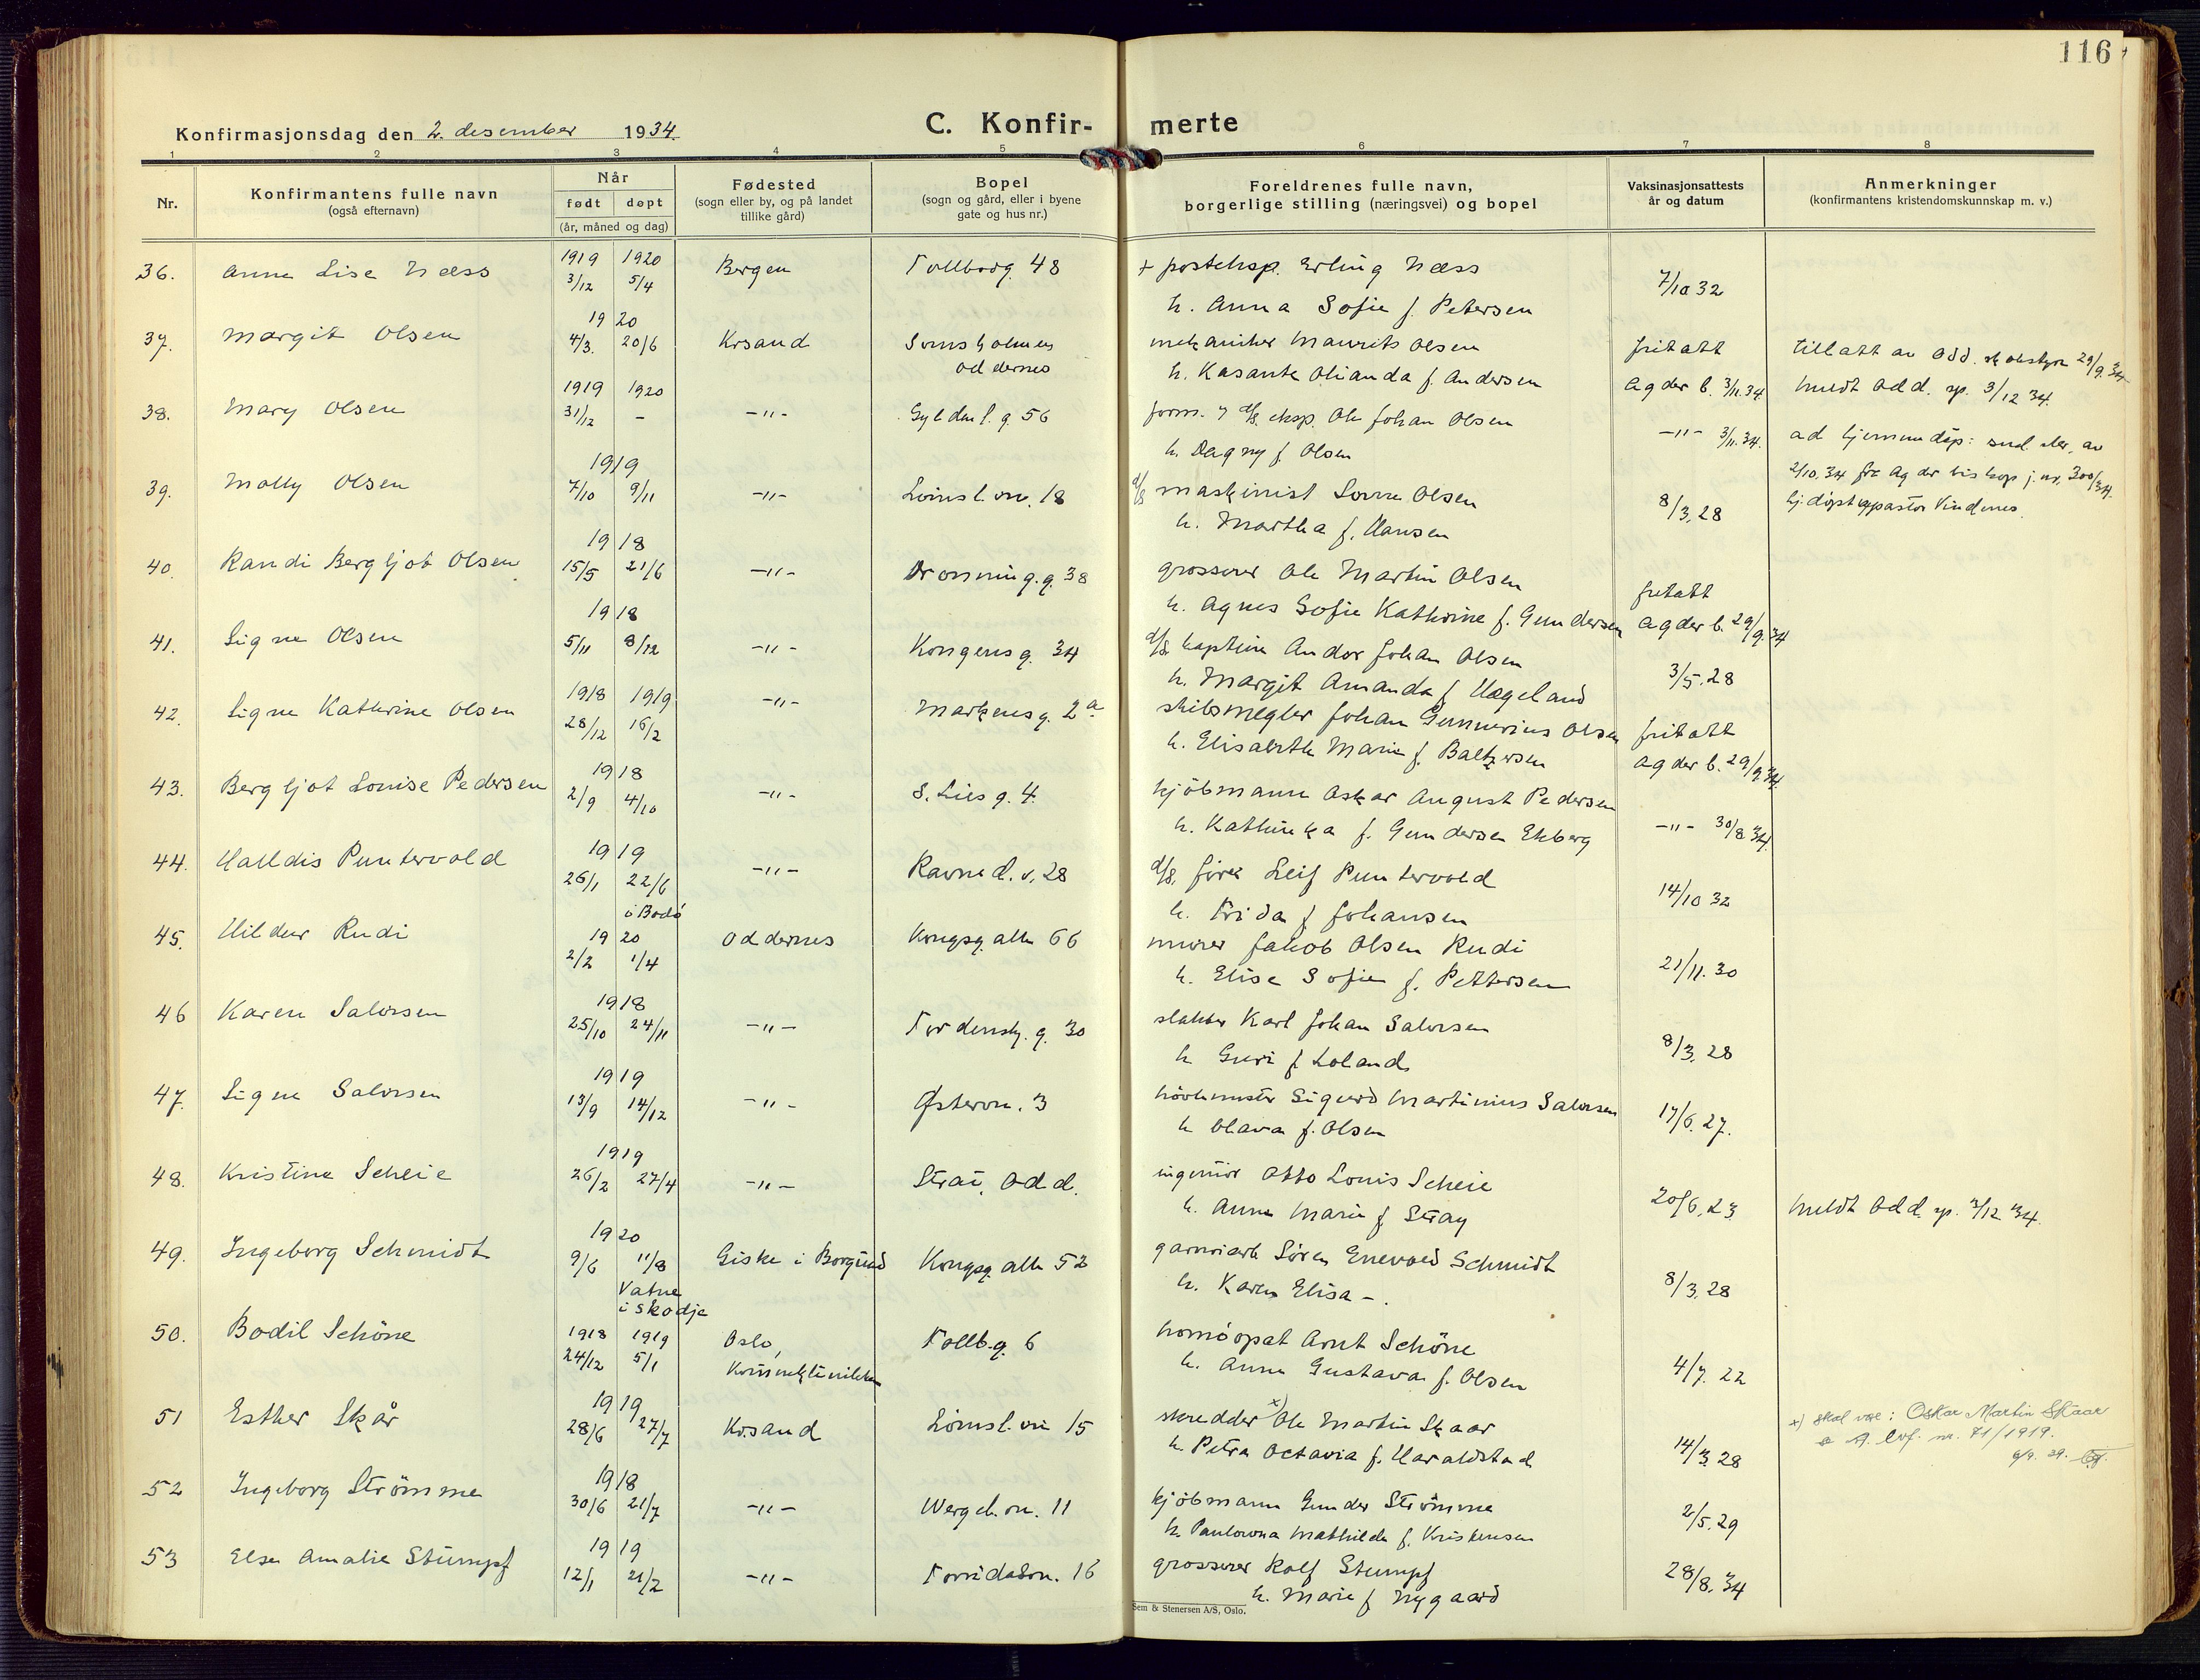 116
Konfirmasjonsdag den 2. desember 1934.
C. Konfir- merte
1 2 3 4 5 6 7 8
Nr.
Konfirmantens fulle navn
(også efternavn)
Når
født døpt
(år, måned og dag)
Fødested
(sogn eller by, og på landet
tillike gård)
Bopel
(sogn og gård, eller i byene
gate og hus nr.)
Foreldrenes fulle navn,
borgerlige stilling (næringsvei) og bopel
Vaksinasjonsattests
år og datum
Anmerkninger
(konfirmantens kristendomskunnskap m. v.)
1919 1920
36. Anna Lise Næss 3/12 5/4 Bergen Tollbodg. 48 + posteksp. Erling Næss
7/10 32
h. Anna Sofie f. Petersen
19 20
37. Margit Olsen 4/3. 20/6 Krsand Oddernes mekaniker Maurits Olsen fritatt tillatt av Odd. skolestyre 29/9. 34
h. Kasante Olianda f. Andersen Agder b. 3/11.34. meldt Odd. sp. 3/12 34.
1919 1920
38. Mary Olsen 31/12 - -"- Gyldenl. g. 56 form. v d/s. eksp. Ole Johan Olsen
h. Dagny f. Olsen -"- 3/11.34. ad hjemmedåp:
2/10.34 fra Agder biskop j. nr. 300/34.
19 19
39. Molly Olsen 7/10 9/11 -"- Lømsl. vn. 18 d/s maskinist Olsen
h. Martha f. Hansen 8/3. 28
19 18
40. Randi Bergljot Olsen 15/5 21/6 -"- Dronning. g. 38 grosserer Ole Martin Olsen
h. Agnes Sofie Kathrine f. Gundersen
fritatt
Agder b. 29/9.34
19 18
41. Signe Olsen 5/11 8/12 -"- Kongens g. 34 d/s. kaptein Andor Johan Olsen
h. Margit Amanda f. Hægeland 3/5.28
1918 1919
42. Signe Kathrine Olsen 28/12 16/2 -"- Markens g. 2a skibsmegler Johan Gunnerius Olsen
h. Elisabeth Marie f. Baltzersen
fritatt
Agder b. 29/9.34.
19 18
43. Bergljot Louise Pedersen 2/9 4/10 -"- S. Lies g. 4. kjöbmann Oskar August Pedersen
h. Kathinka f. Gundersen Ekberg -"- 30/8 34.
19 19
44. Halldis Puntervold 26/1 22/6 -"- Ravned. v. 28 d/s. fører Leif Puntervold
i Bodö
h. Frida f Johansen 14/10 32
45. Hildur Rudi 19 20 Oddernes Kongsg. alle 66 murer Jakob Olsen Rudi
2/2 1/4
h. Elise Sofie f. Pettersen 21/11. 30
19 18
46 Karen Salvesen 25/10 24/11 -"- Tordensk. g. 30 slakter Karl Johan Salvesen
h Guri f Loland 8/3. 28
19 19
47. Signe Salvesen 13/9 14/12 -"- Østervn. 3 Sigurd Martinius Salvesen
h Olava f. Olsen 17/6. 27.
1919
48. Kristine Scheie 26/2 27/4 -"- Strai, Odd. ingeniør Otto Louis Scheie
h. Anna Marie f Stray 20/6. 23 meldt Odd. sp. 3/12 34.
19 20
49. Ingeborg Schmidt 9/6 11/8 Giske i Borgund Kongsg. alle 52 Søren Enevold Schmidt
Vatne
i Skodje
h. Karen Elisa -. 8/3. 28
50. Bodil Schöne 1918 1919 Oslo, Tollb.g. 6 homöopat Arnt Schöne
24/12 5/1 Kvinneklinikken
h. Anna Gustava f. Olsen 4/7. 22
19 19
51 Esther Skår 28/6 27/7 Krsand Lömsl. vn 15 skredder x) Ole Martin Skaar
h. Petra Octavia f. Haraldstad 14/3 28
x) skal være: Oskar Martin Skaar
71/1919.
19 18
52 Ingeborg Strömme 30/6 21/7 -"- Wergel. vn. 11 kjöbmann Gunder Strömme
h. Paulowna Mathilde f. Kristensen 2/5.29
19 19
53 Else Amalie Stumpf 12/1 21/2 -"- Torridalsvn. 16 grosserer Rolf Stumpf
h. Marie f Nygaard 28/8. 34
Sem & Stenersen A/S, Oslo.